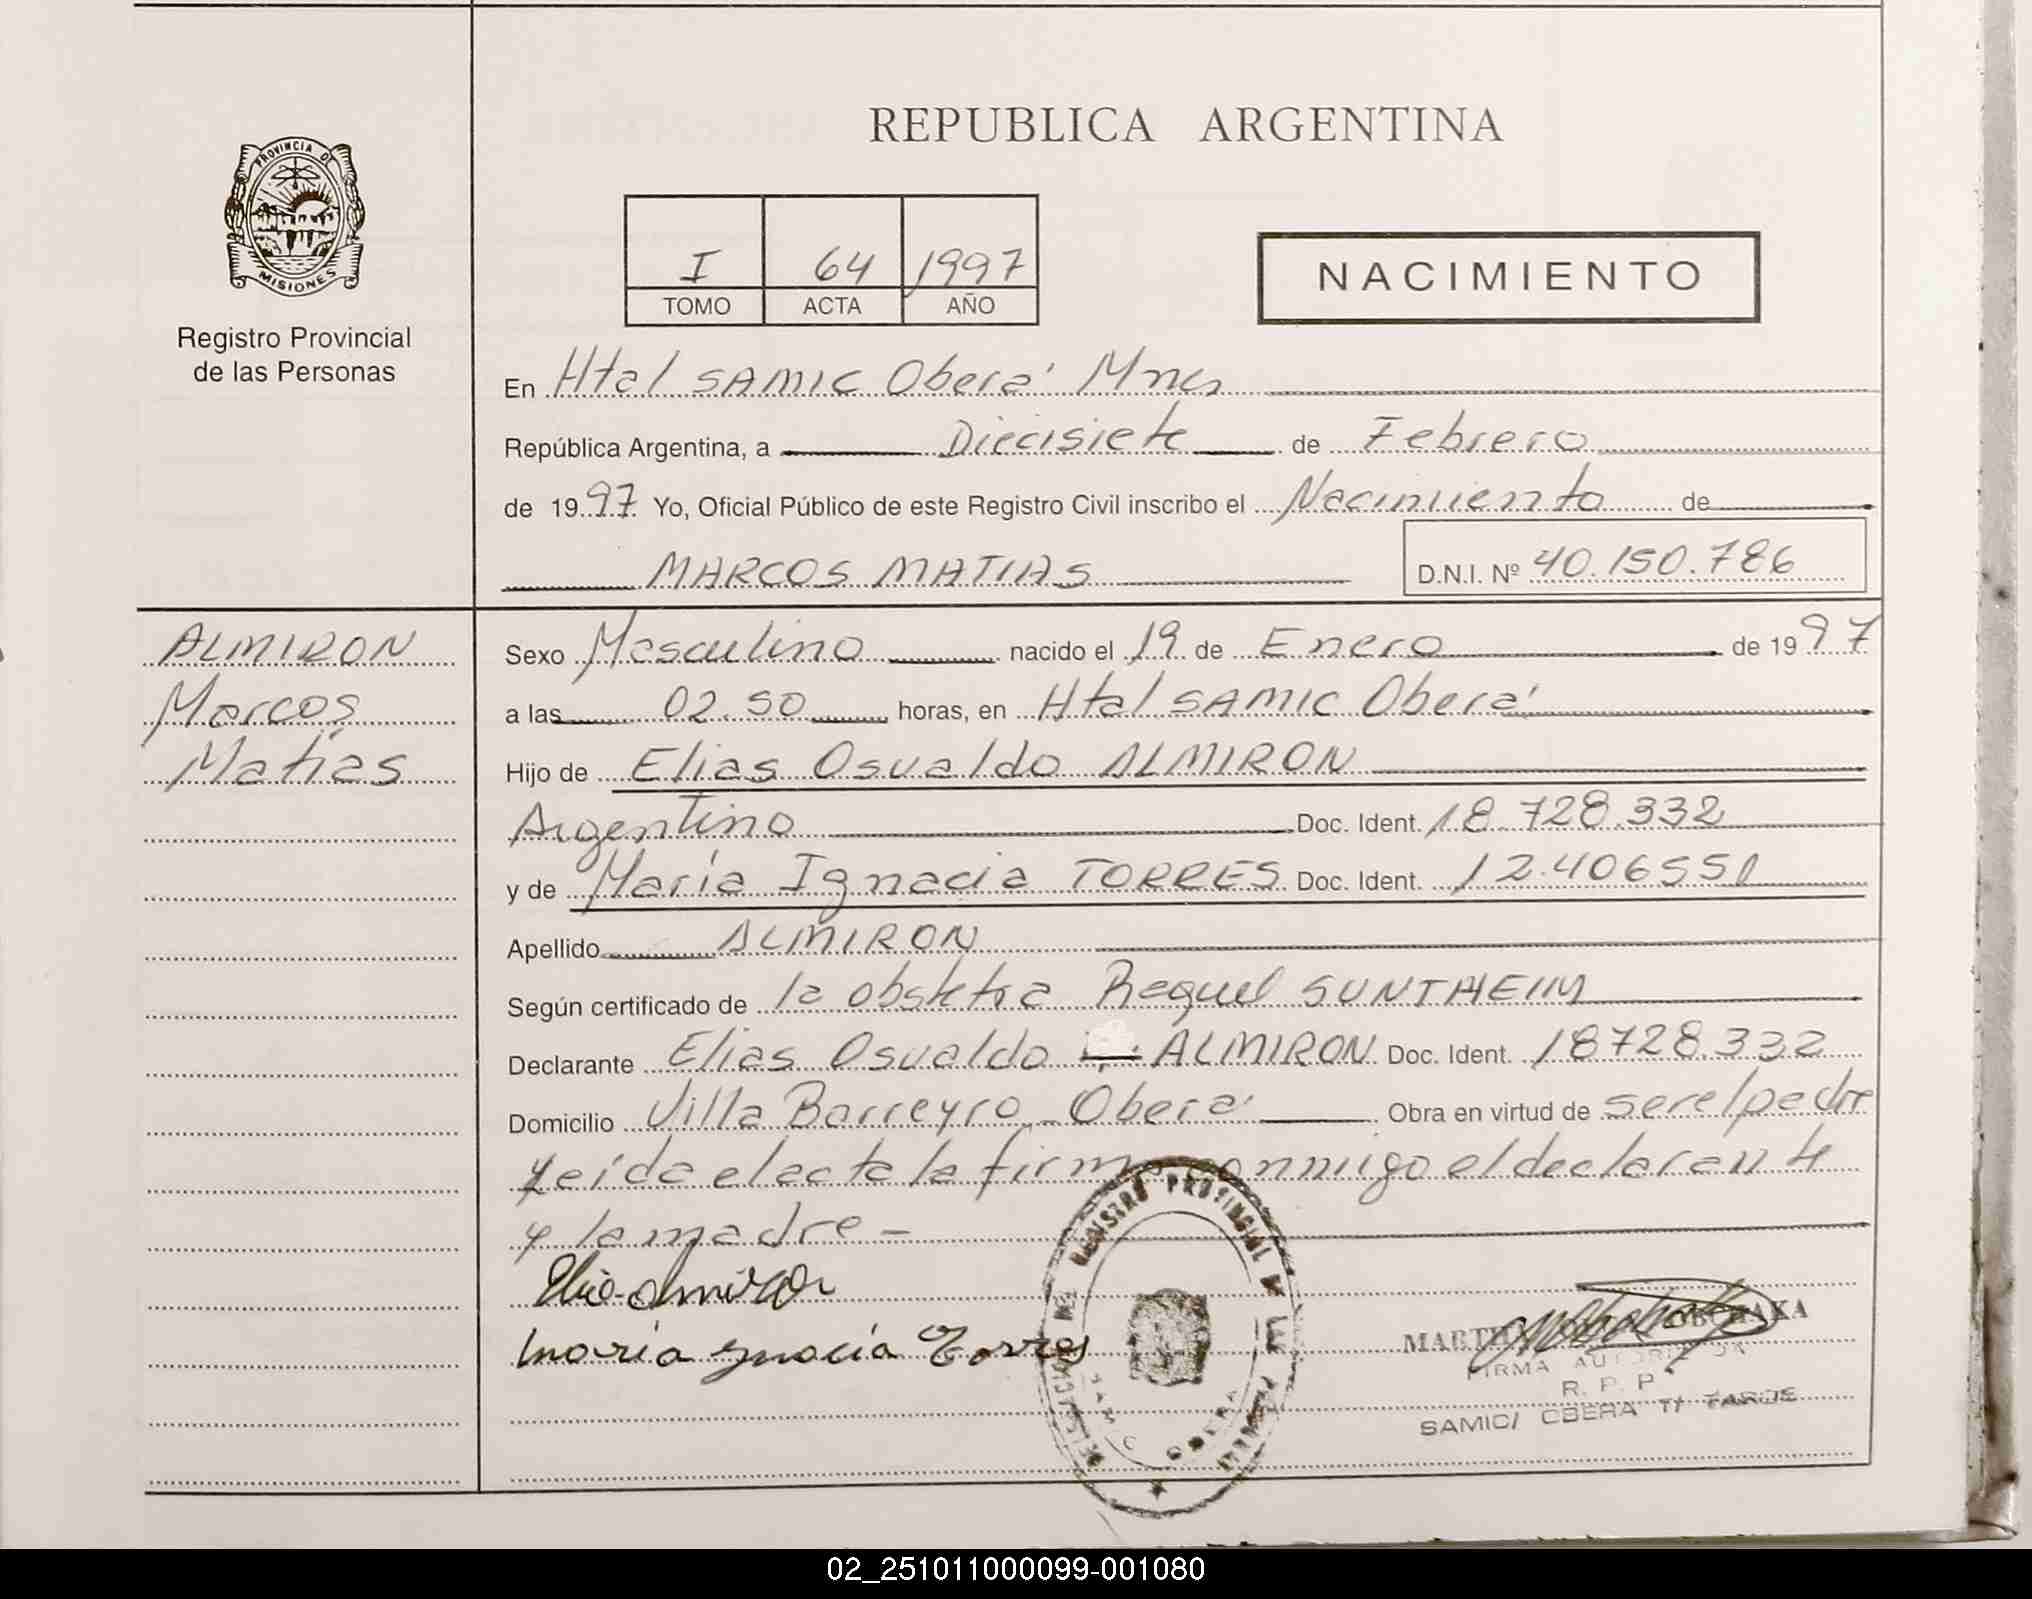 REPUBLICA ARGENTINA
PROVINCIA DE
MISIONES
Registro Provincial
de las Personas
I 64 1997
TOMO ACTA AÑO
NACIMIENTO
En Htal SAMIC Oberá Mnes
República Argentina, a Diecisiete de Febrero
de 1997 Yo, Oficial Público de este Registro Civil inscribo el Nacimiento de
MARCOS MATIAS D.N.I. Nº 40.150.786
ALMIRON
Marcos
Matías
Sexo Masculino nacido el 19 de Enero de 1997
a las 02.50 horas, en Htal SAMIC Oberá
Hijo de Elias Osvaldo ALMIRON
Argentino Doc. Ident. 18.728.332
y de María Ignacia TORRES Doc. Ident. 12.406551
Apellido ALMIRON
Según certificado de la obstetra Raquel SUNTHEIM
Declarante Elias Osvaldo ALMIRON Doc. Ident. 18728.332
Domicilio Villa Barreyro - Oberá Obra en virtud de ser el padre
Leída el acta la firma conmigo el declarante
y la madre -
Almiron
Maria Ignacia Torres
REGISTRO PROVINCIAL DE LAS PERSONAS
SAMIC
OBERA
MARTHA
FIRMA AUTORIZADA
R. P. P.
SAMIC/ OBERA T/ TARDE
02_251011000099-001080